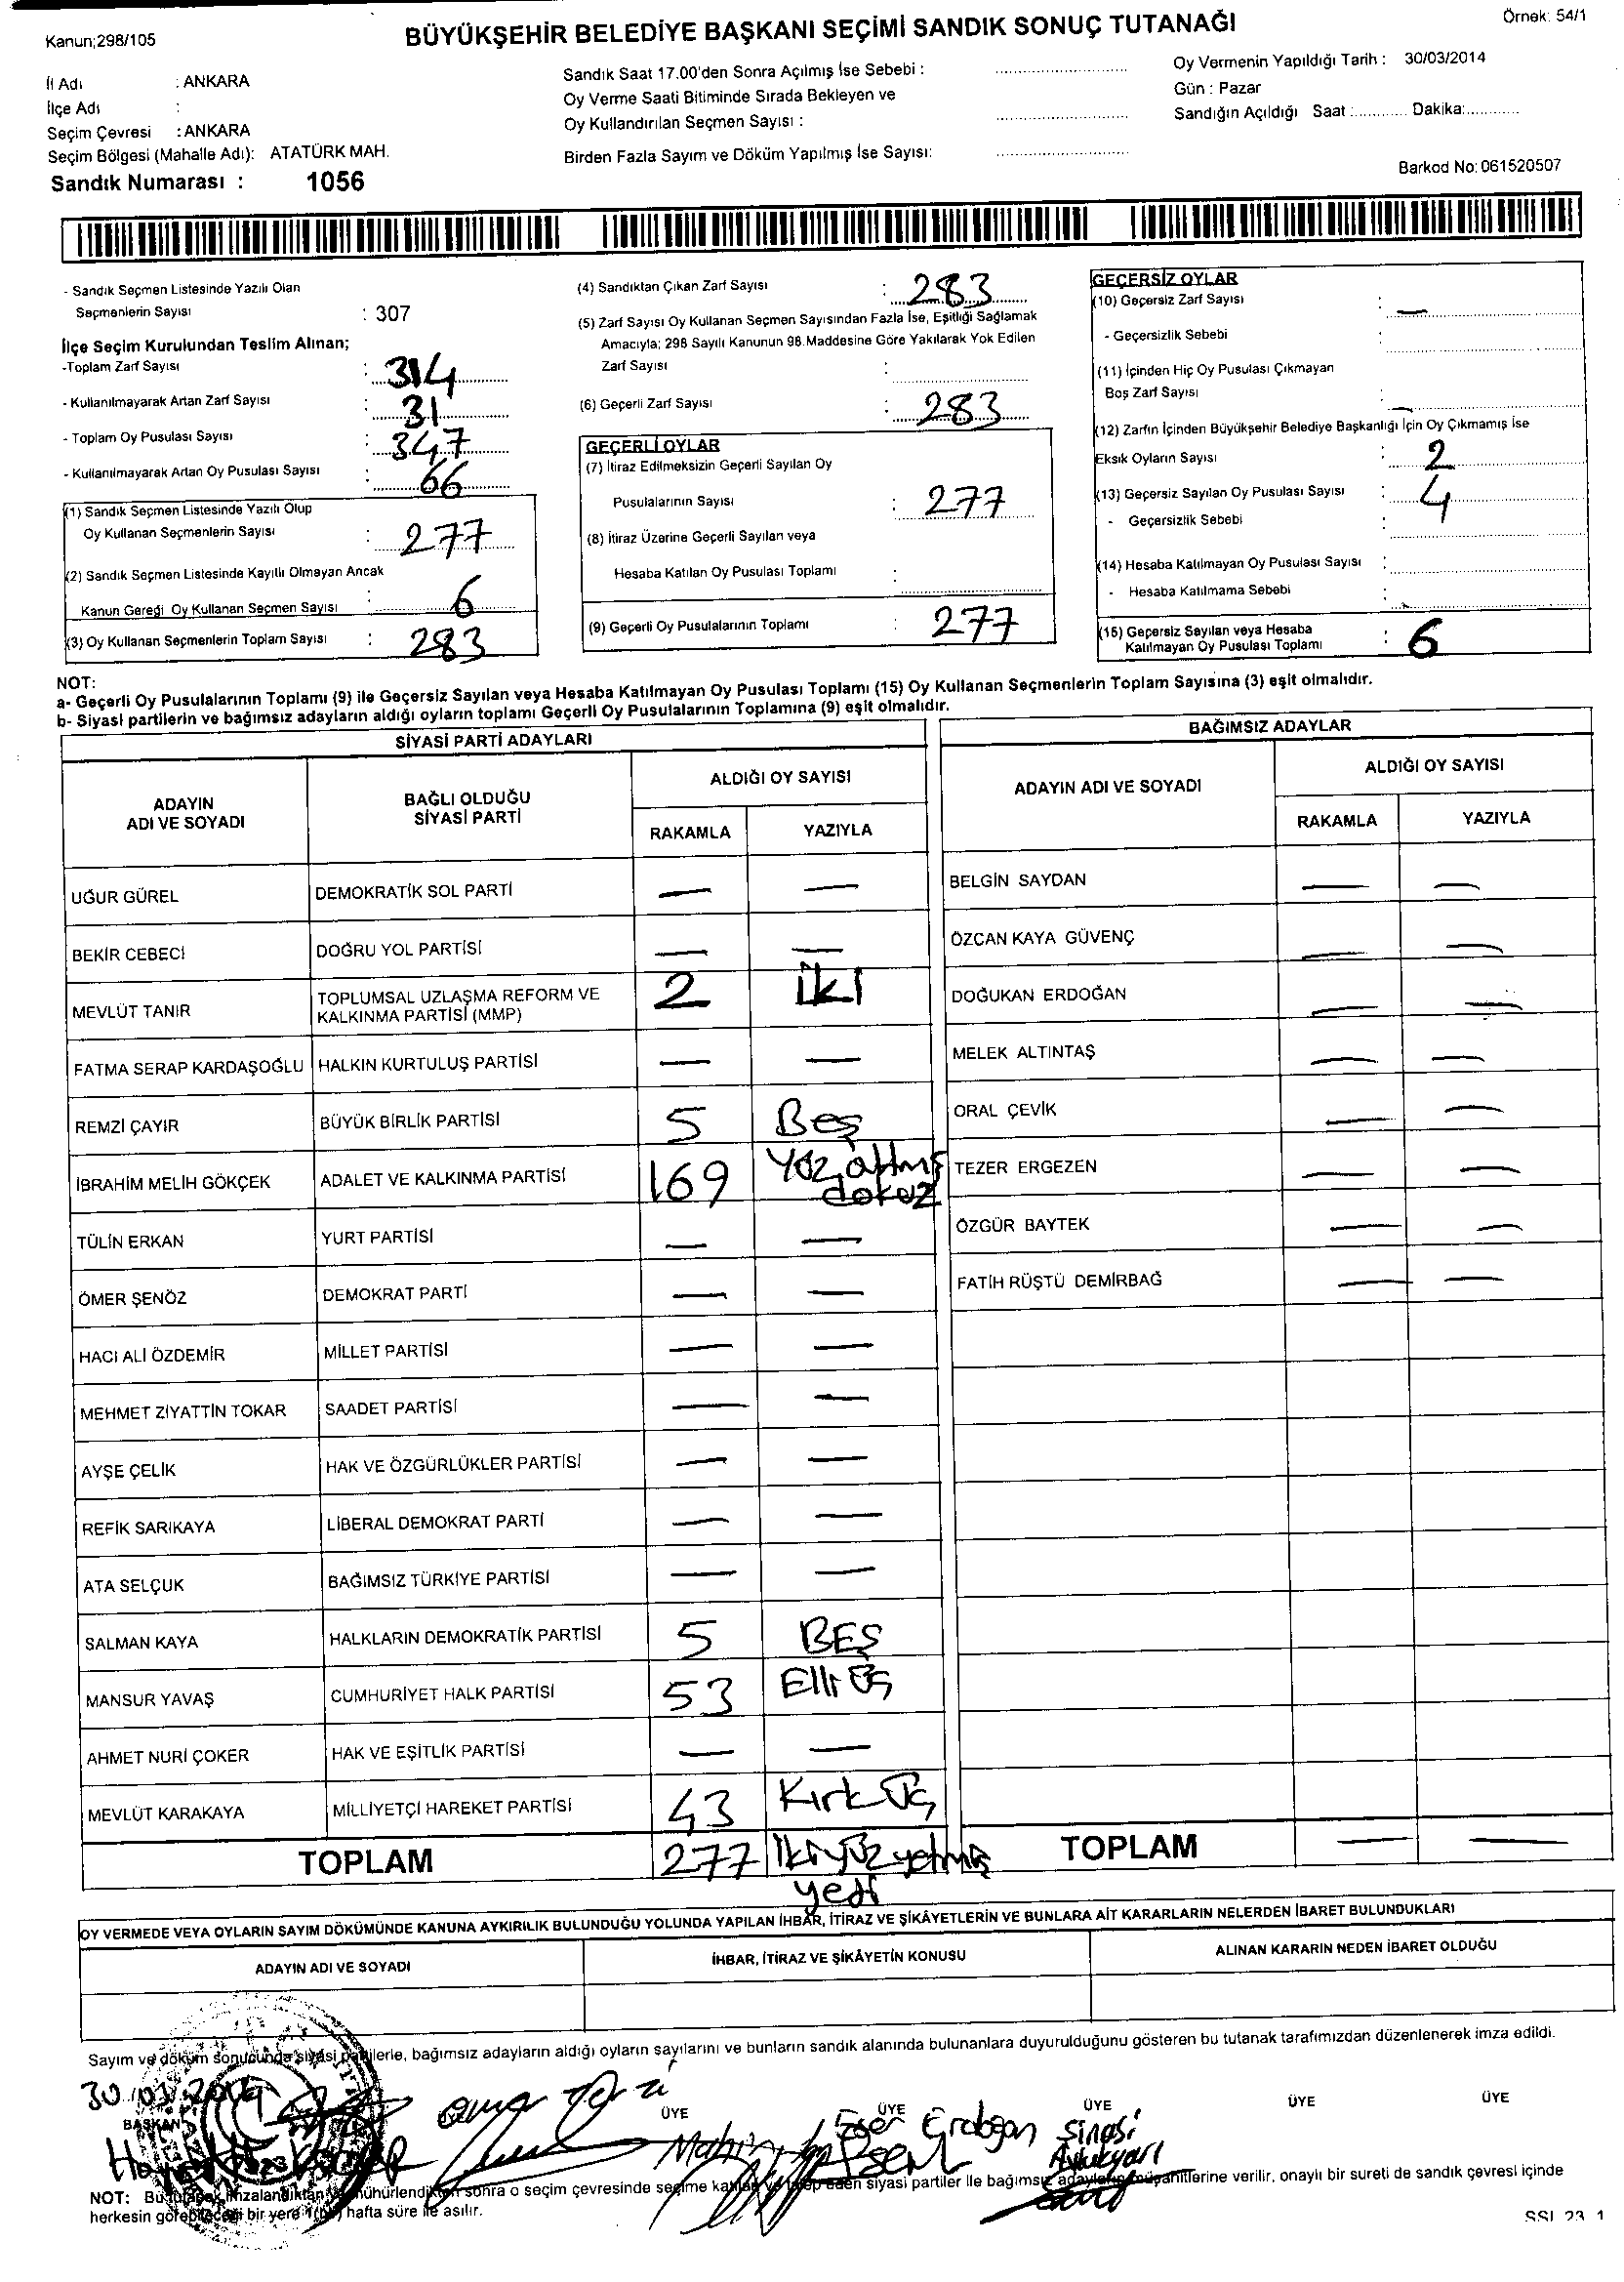 Kanun;298/105
BÜYÜKŞEHİR BELEDİYE BAŞKANI SEÇİMİ SANDIK SONUÇ TUTANAĞI
Örnek: 54/1
İl Adı : ANKARA
İlçe Adı :
Seçim Çevresi : ANKARA
Seçim Bölgesi (Mahalle Adı): ATATÜRK MAH.
Sandık Numarası : 1056
Sandık Saat 17.00'den Sonra Açılmış İse Sebebi :
Oy Verme Saati Bitiminde Sırada Bekleyen ve
Oy Kullandırılan Seçmen Sayısı :
Birden Fazla Sayım ve Döküm Yapılmış İse Sayısı:
Oy Vermenin Yapıldığı Tarih : 30/03/2014
Gün : Pazar
Sandığın Açıldığı Saat :............ Dakika:............
Barkod No: 061520507
- Sandık Seçmen Listesinde Yazılı Olan
Seçmenlerin Sayısı : 307
İlçe Seçim Kurulundan Teslim Alınan;
-Toplam Zarf Sayısı : 314
- Kullanılmayarak Artan Zarf Sayısı : 31
- Toplam Oy Pusulası Sayısı : 347
- Kullanılmayarak Artan Oy Pusulası Sayısı : 66
(1) Sandık Seçmen Listesinde Yazılı Olup
Oy Kullanan Seçmenlerin Sayısı : 277
(2) Sandık Seçmen Listesinde Kayıtlı Olmayan Ancak
Kanun Gereği Oy Kullanan Seçmen Sayısı : 6
(3) Oy Kullanan Seçmenlerin Toplam Sayısı : 283
(4) Sandıktan Çıkan Zarf Sayısı : 283
(5) Zarf Sayısı Oy Kullanan Seçmen Sayısından Fazla İse, Eşitliği Sağlamak
Amacıyla; 298 Sayılı Kanunun 98.Maddesine Göre Yakılarak Yok Edilen
Zarf Sayısı :
(6) Geçerli Zarf Sayısı : 283
GEÇERLİ OYLAR
(7) İtiraz Edilmeksizin Geçerli Sayılan Oy
Pusulalarının Sayısı : 277
(8) İtiraz Üzerine Geçerli Sayılan veya
Hesaba Katılan Oy Pusulası Toplamı :
(9) Geçerli Oy Pusulalarının Toplamı : 277
GEÇERSİZ OYLAR
(10) Geçersiz Zarf Sayısı : —
- Geçersizlik Sebebi :
(11) İçinden Hiç Oy Pusulası Çıkmayan
Boş Zarf Sayısı : —
(12) Zarfın İçinden Büyükşehir Belediye Başkanlığı İçin Oy Çıkmamış İse
Eksik Oyların Sayısı : 2
(13) Geçersiz Sayılan Oy Pusulası Sayısı : 4
- Geçersizlik Sebebi :
(14) Hesaba Katılmayan Oy Pusulası Sayısı :
- Hesaba Katılmama Sebebi :
(15) Geçersiz Sayılan veya Hesaba
Katılmayan Oy Pusulası Toplamı : 6
NOT:
a- Geçerli Oy Pusulalarının Toplamı (9) ile Geçersiz Sayılan veya Hesaba Katılmayan Oy Pusulası Toplamı (15) Oy Kullanan Seçmenlerin Toplam Sayısına (3) eşit olmalıdır.
b- Siyasi partilerin ve bağımsız adayların aldığı oyların toplamı Geçerli Oy Pusulalarının Toplamına (9) eşit olmalıdır.
SİYASİ PARTİ ADAYLARI
ADAYIN ADI VE SOYADI BAĞLI OLDUĞU SİYASİ PARTİ ALDIĞI OY SAYISI
RAKAMLA YAZIYLA
UĞUR GÜREL DEMOKRATİK SOL PARTİ — —
BEKİR CEBECİ DOĞRU YOL PARTİSİ — —
MEVLÜT TANIR TOPLUMSAL UZLAŞMA REFORM VE KALKINMA PARTİSİ (MMP) 2 İki
FATMA SERAP KARDAŞOĞLU HALKIN KURTULUŞ PARTİSİ — —
REMZİ ÇAYIR BÜYÜK BİRLİK PARTİSİ 5 Beş
İBRAHİM MELİH GÖKÇEK ADALET VE KALKINMA PARTİSİ 169 Yüz atmış dokuz
TÜLİN ERKAN YURT PARTİSİ — —
ÖMER ŞENÖZ DEMOKRAT PARTİ — —
HACI ALİ ÖZDEMİR MİLLET PARTİSİ — —
MEHMET ZİYATTİN TOKAR SAADET PARTİSİ — —
AYŞE ÇELİK HAK VE ÖZGÜRLÜKLER PARTİSİ — —
REFİK SARIKAYA LİBERAL DEMOKRAT PARTİ — —
ATA SELÇUK BAĞIMSIZ TÜRKİYE PARTİSİ — —
SALMAN KAYA HALKLARIN DEMOKRATİK PARTİSİ 5 BEŞ
MANSUR YAVAŞ CUMHURİYET HALK PARTİSİ 53 Elli Üç
AHMET NURİ ÇOKER HAK VE EŞİTLİK PARTİSİ — —
MEVLÜT KARAKAYA MİLLİYETÇİ HAREKET PARTİSİ 43 Kırk Üç
TOPLAM 277 İkiyüz yetmiş yedi
BAĞIMSIZ ADAYLAR
ADAYIN ADI VE SOYADI ALDIĞI OY SAYISI
RAKAMLA YAZIYLA
BELGİN SAYDAN — —
ÖZCAN KAYA GÜVENÇ — —
DOĞUKAN ERDOĞAN — —
MELEK ALTINTAŞ — —
ORAL ÇEVİK — —
TEZER ERGEZEN — —
ÖZGÜR BAYTEK — —
FATİH RÜŞTÜ DEMİRBAĞ — —
TOPLAM — —
OY VERMEDE VEYA OYLARIN SAYIM DÖKÜMÜNDE KANUNA AYKIRILIK BULUNDUĞU YOLUNDA YAPILAN İHBAR, İTİRAZ VE ŞİKÂYETLERİN VE BUNLARA AİT KARARLARIN NELERDEN İBARET BULUNDUKLARI
ADAYIN ADI VE SOYADI İHBAR, İTİRAZ VE ŞİKÂYETİN KONUSU ALINAN KARARIN NEDEN İBARET OLDUĞU
Sayım ve döküm sonucunda siyasi partilerle, bağımsız adayların aldığı oyların sayılarını ve bunların sandık alanında bulunanlara duyurulduğunu gösteren bu tutanak tarafımızdan düzenlenerek imza edildi.
30.03.2014
BAŞKAN ÜYE ÜYE ÜYE ÜYE ÜYE
Eser Erdoğan Sinasi
NOT: Bu tutanak imzalandıktan ve mühürlendikten sonra o seçim çevresinde seçime katılan ve talep eden siyasi partiler ile bağımsız adayların müşahitlerine verilir, onaylı bir sureti de sandık çevresi içinde
herkesin görebileceği bir yere 1(bir) hafta süre ile asılır.